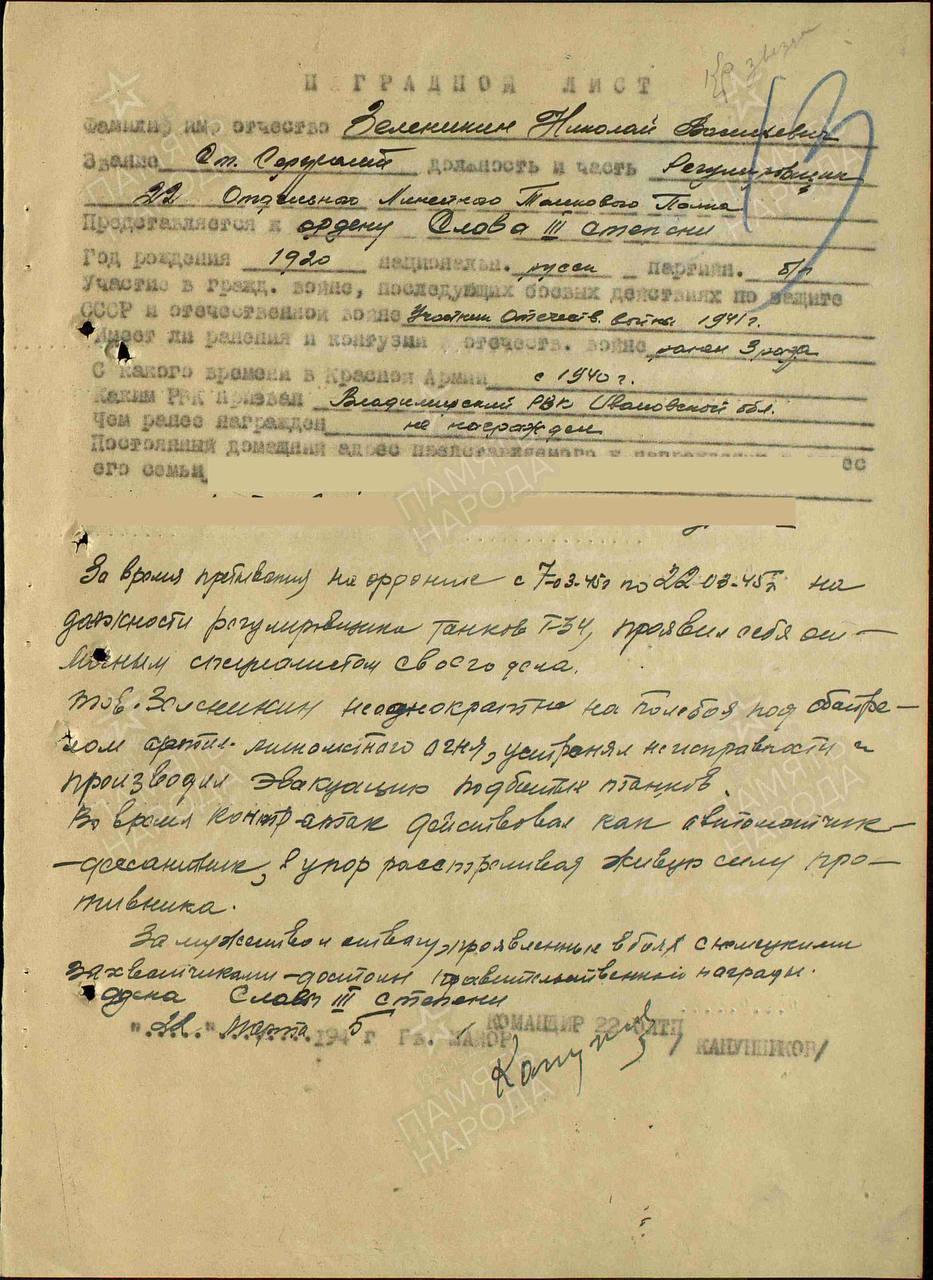 Кр звезда
НАГРАДНОЙ ЛИСТ
13
Фамилия имя отчество Зеленикин Николай Васильевич
Звание Ст. Сержант должность и часть Регулировщик
22 Отдельного Линейного Танкового Полка
Представляется к ордену Слава III степени
Год рождения 1920 национальн. русск партийн. б/п
Участие в гражд. войне, последующих боевых действиях по защите
СССР и отечественной войне Участник Отечеств. войны 1941 г.
Имеет ли ранения и контузии в отечеств. войне ранен 3 раза
С какого времени в Красной Армии с 1940 г.
Каким РВК призван Владимирский РВК Ивановской обл.
Чем ранее награжден не награжден
Постоянный домашний адрес представляемого к награждению
его семьи
За время пребывания на фронте с 7-03-45г по 22-03-45г на
должности регулировщика танков Т-34, проявил себя от-
личным специалистом своего дела.
тов. Зеленикин неоднократно на поле боя под обстре-
лом артил. минометного огня, устранял неисправности и
производил эвакуацию подбитых танков.
Во время контратак действовал как автоматчик-
-десантник, в упор расстреливая живую силу про-
тивника.
За мужество и отвагу, проявленные в боях с немецкими
захватчиками - достоин правительственной награды.
ордена Славы III степени
КОМАНДИР 22 ОЛТП
"22" Марта 1945 г ГВ. МАЙОР /КАНУННИКОВ/
ПАМЯТЬ НАРОДА